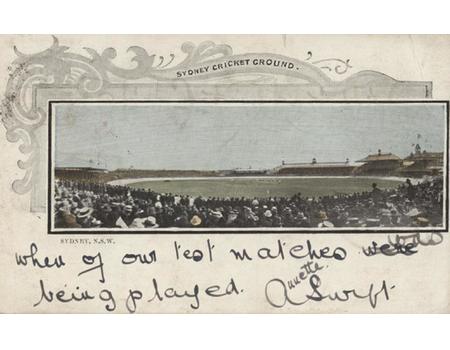 SYDNEY CRICKET GROUND.
SYDNEY, N.S.W.
when of our test matches were was
being played. Annette. Swift